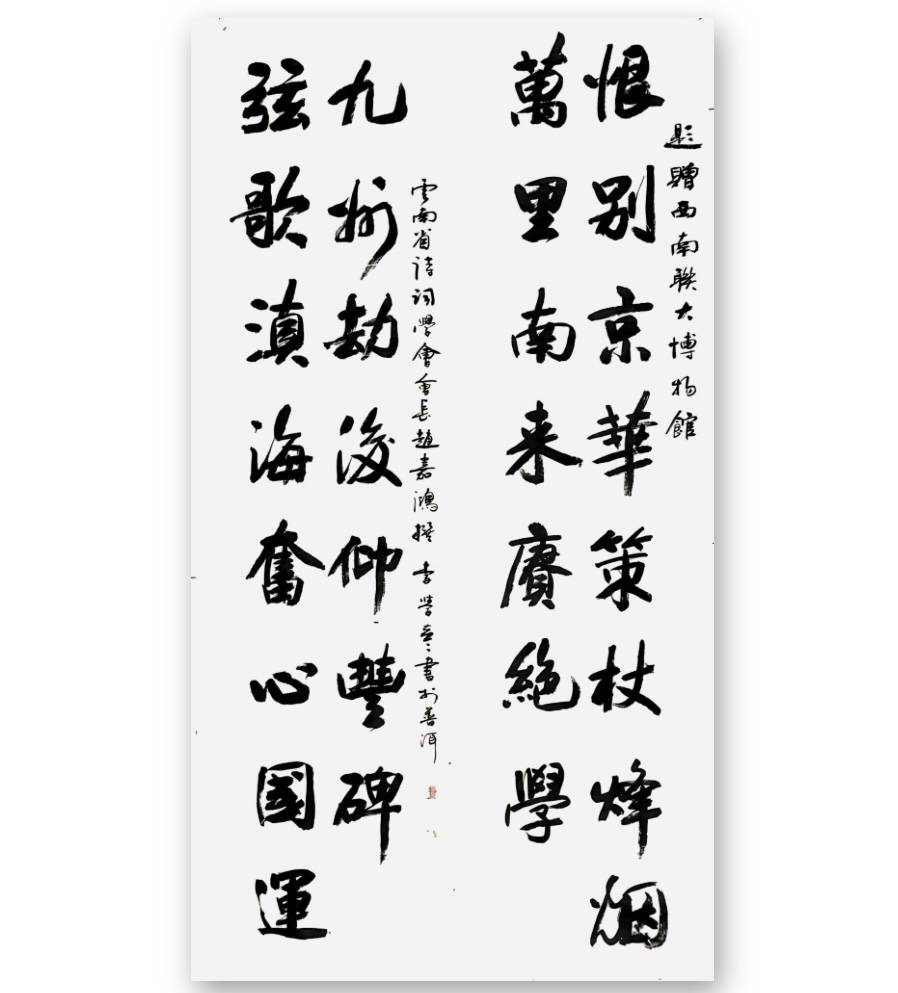 題贈西南聯大博物館
恨别京華策杖烽烟
萬里南来賡絶學
弦歌滇海奮心國運
九州劫後仰豐碑
雲南省詩詞學會會長趙嘉鴻撰 書於普洱